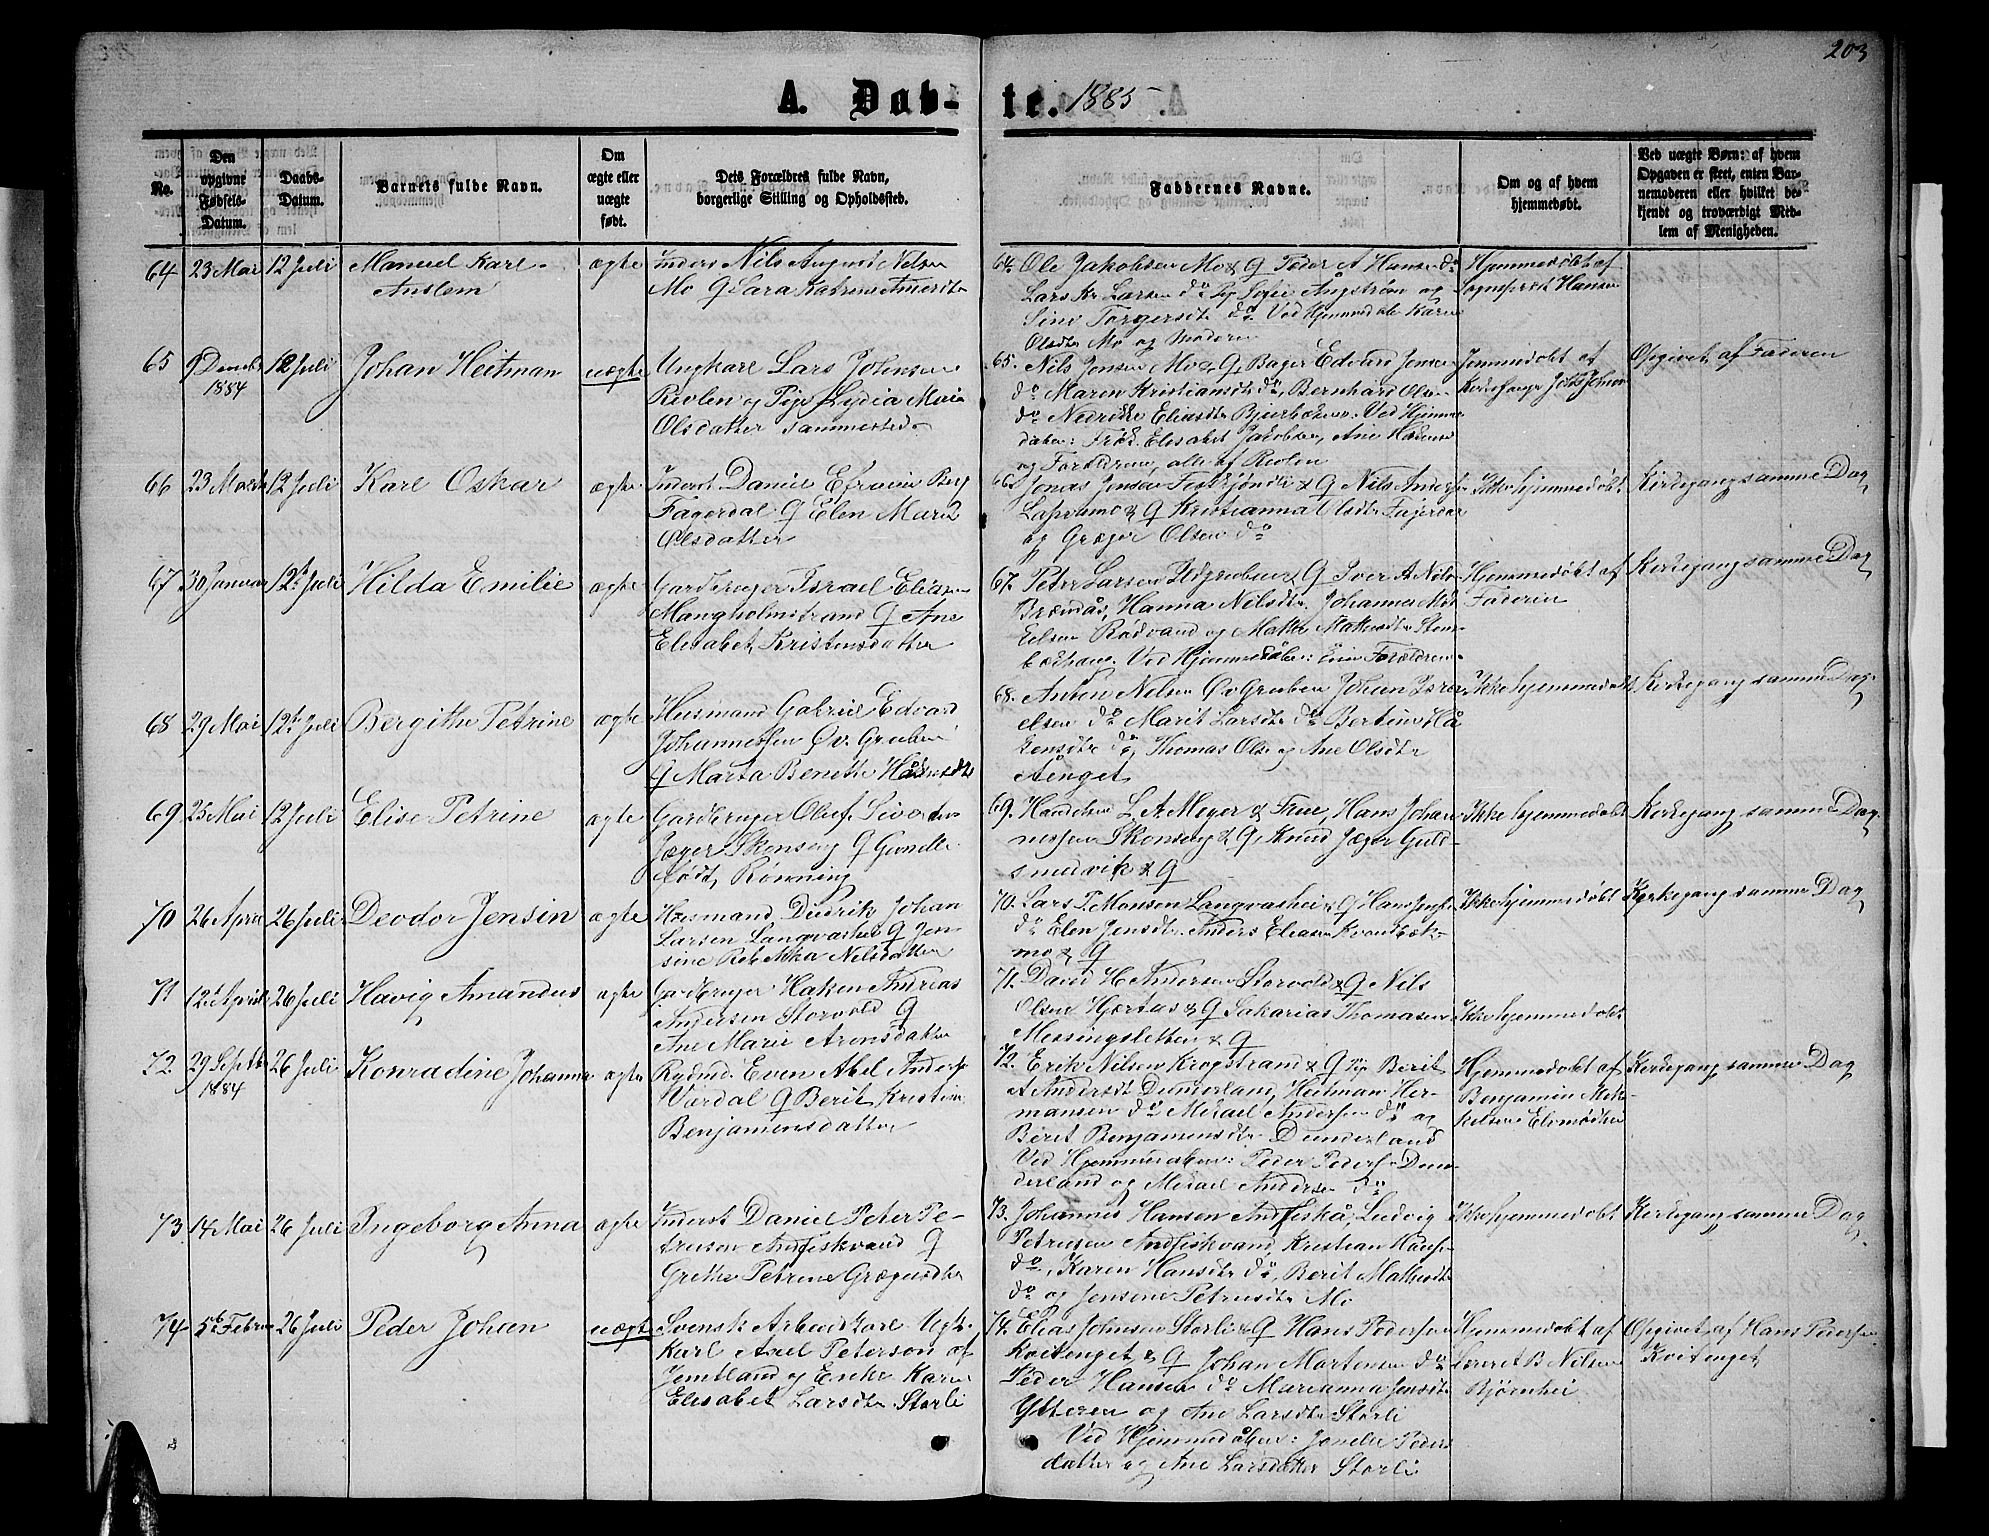 203
A. Døb-te. 1885
No.
Den opgivne Fødsels-Datum.
Daabs-Datum.
Barnets fulde Navn.
Om ægte eller uægte født.
Dets Forældres fulde Navn, borgerlige Stilling og Opholdssted.
Faddernes Navne.
Om og af hvem hjemmedøbt.
Ved uægte Børn: af hvem Opgaven er skeet, enten Barnemoderen eller hvilket bekjendt og troværdigt Medlem af Menigheden.
64 23 Mai 12 Juli Manuel Karl
Anslem
ægte
Inderst Nils August Nelsen
Mo
64. Ole Jakobsen Mo & Q Peder A Hansen do
Lars Kr Larsen do Pig Sofie Angstrøm og
Sini Torgersdt do. Ved Hjemmedåb Karen
Olsdtr Mo og Moderen
Hjemmedøbt af
Sogneprest Hansen
65 9 Decmbr 12 Juli Johan Heitman
1884
uægte
Ungkarl Lars Johnsen
Revlen og Pige Lydia Maria
Olsdatter sammesteds
65. Nils Jensen Mo & Q Bager Edvard Jensen
do Maren Kristiansdtr do, Bernhard Olsen
do
og Forældrene, alle af Revlen
Hjemmedøbt af
Opgivet af Faderen
66 23 Marts 12 Juli Karl Oskar
ægte
Inderst Daniel Efraim Berg
Fagerdal Q Elen Marie
Olsdatter
66. Jonas Jensen
& Q Kristianna Olsdtr Fagerdal
og Græger Olsen do
Ikke hjemmedøbt
Kirkegang samme Dag
67 30 Januar 12te Juli Hilda Emilie
ægte
Gardbruger Israel Eliasen
Mangholmstrand Q Ane
Elisabet Kristensdatter
67. Peter Larsen Ytgruben & Q Iver A Nils
Brændås, Hanna Nilsdtr. Johannes
Ved Hjemmedåben: Forældrene
Hjemmedøbt af
Faderen
Kirkegang samme Dag
68 29 Mai 12te Juli Bergithe Petrine
ægte
Husmand Gabriel Edvard
Johannessen Øv. Gruben
Q Marta Benette Håkensdtr
68. Anton Nilsen Øv Gruben Johan Isra-
elsen do Marit Larsdtr do Bertine Hå
kensdtr do, Thomas Olse og Ane Olsdtr
Aenget
Ikke hjemmedøbt
Kirkegang samme Dag
69 25 Mai 12 Juli Elise Petrine
ægte
Gardbruger Oluf Sivertsen
Jæger Skonseng Q Gunelle
født Rønning
69. Handelsm L. A. Meyer & Frue, Hans Johan
nessen Skonseng & Q, Knud Jæger Guld-
smedvik & Q
Ikke hjemmedøbt
Kirkegang samme Dag
70 26 April 26 Juli Deodor Jensin
ægte
Husmand Didrik Johan
Larsen Langvashei Q Jen-
sine Rebekka Nilsdatter
70. Lars P. Monsen Langvashei & Q Hans Jens
do Elen Jensdtr. Anders Eliasen Kvandbæk-
mo & Q
Ikke hjemmedøbt
Kirkegang samme Dag
71 12te April 26 Juli Havig Amandus
ægte
Gardbruger Haken Andreas
Andersen Storvold Q
Ane Marie Aronsdatter
71. David H Andersen Storvold & Q Nils
Olsen Hjartås & Q Sakarias Thomasen
Messingsletten & Q
Ikke hjemmedøbt
72 29 Septbr 26 Juli Konradine Johanna
1884
ægte
Rydmd. Even Abel Anders
Vårdal Q Berit Kristine
Benjaminsdatter
72. Erik Nilsen Krogstrand & Q Pig Berit
A Andersdt Dunderland, Heitman Her-
mansen do Mikael Andersen do og
Beret Benjaminsdtr Dunderland
Ved Hjemmedåben: Peder Peders Dun-
derland og Mikael Andersen do
Hjemmedøbt af
Benjamin Mik-
kelsen
Kirkegang samme Dag
73 14 Mai 26 Juli Ingeborg Anna
ægte
Inderst Daniel Peter Pe-
trusen Andfiskvand Q
Grethe Petrine Grægersdtr
73. Johannes Hansen Andfiskå, Ludvig
Petrusen Andfiskvand, Kristian Hans
do, Karen Hansdtr do, Berit Mathisdtr
do og Jensine Petrusdtr Mo
Ikke hjemmedøbt
Kirkegang samme Dag
74 5te Februar 26 Juli Peder Johan
uægte
Svensk Arbeidskarl Ugk
Karl Axel Peterson af
Jemtland og Enke Karen
Elisabet Larsdtr Storli
74. Elias Johnsen Storli & Q Hans Pedersen
Kvitenget & Q Johan Mortensen do
Peder Hansen do Marianna Jensdtr
Ytteren og Ane Larsdtr Storli
Ved Hjemmedåben: Peders
datter og Ane Larsdatter Storli
Hjemmedøbt af
Lærer B Nilsen
Bjørnhei
Opgivet af Hans Pedersen
Kvitenget